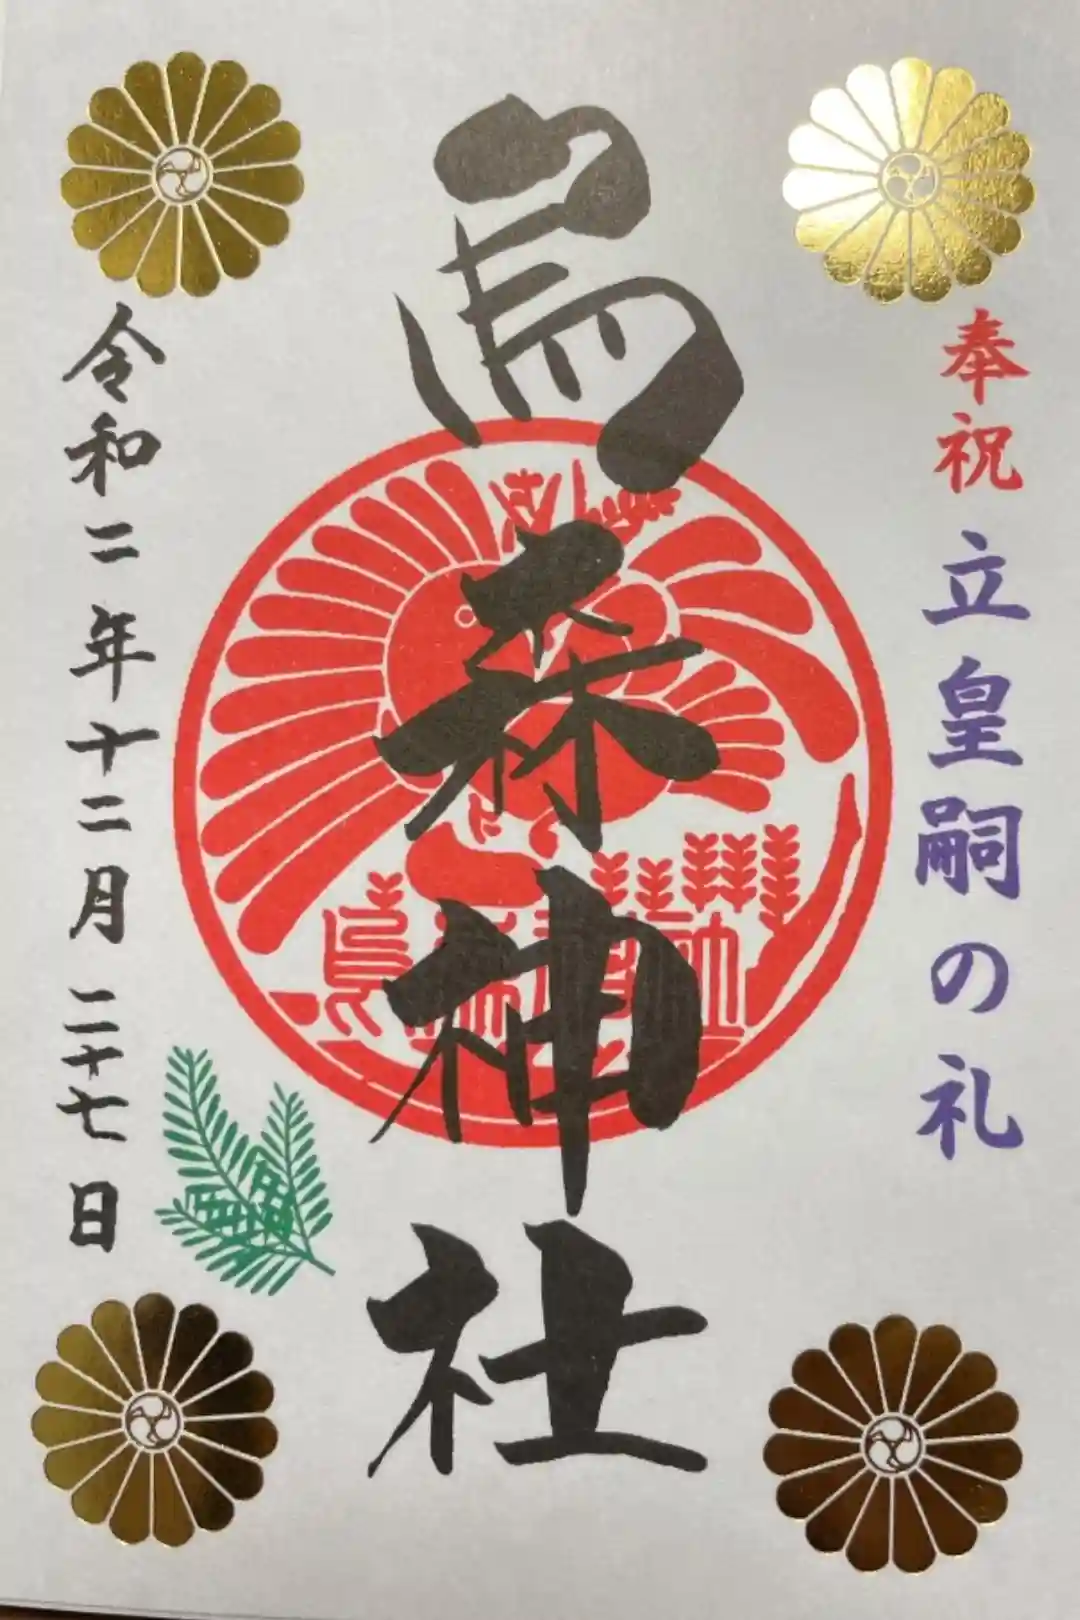 奉祝 立皇嗣の礼
烏森神社
令和二年十二月二十七日